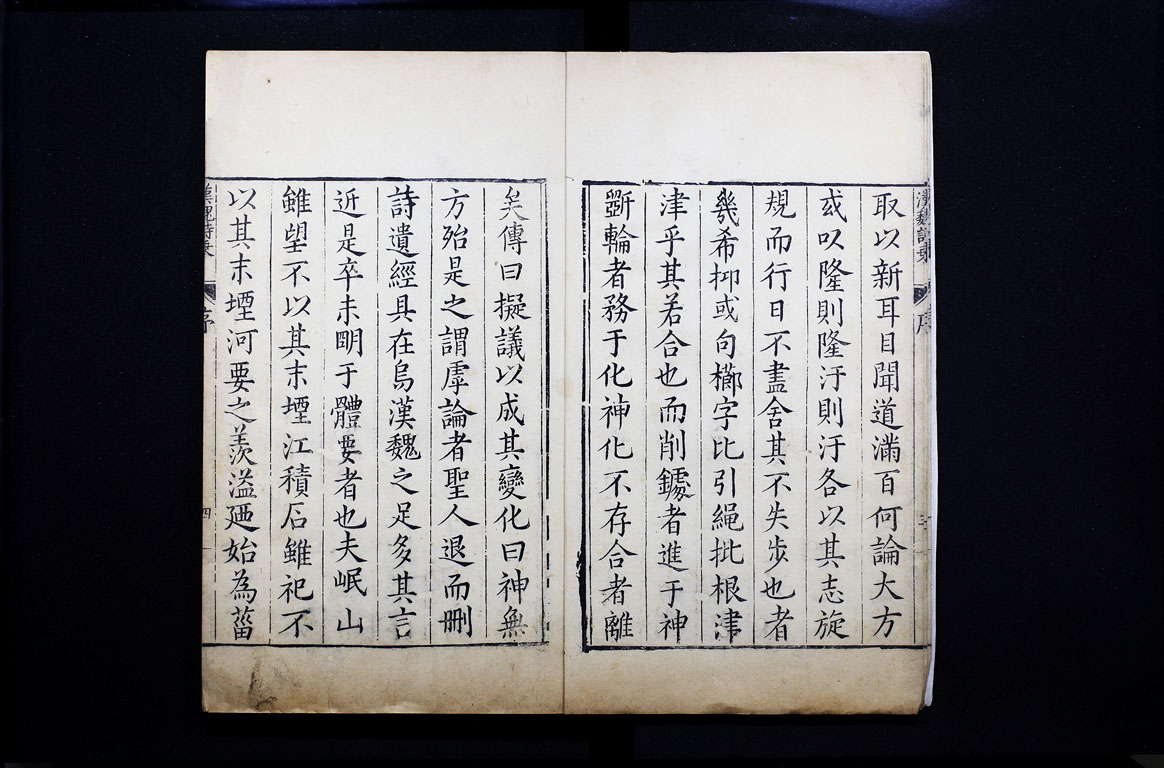 漢魏詩乘
序
三
取以新耳目聞道滿百何論大方
或以隆則隆汙則汙各以其志旋
規而行日不盡舍其不失步也者
幾希抑或句櫛字比引繩批根津
津乎其若合也而削鐻者進于神
斲輪者務于化神化不存合者離
矣傳曰擬議以成其變化曰神無
方殆是之謂虖論者聖人退而刪
詩遺經具在烏漢魏之足多其言
近是卒未明于體要者也夫岷山
雖望不以其末堙江積石雖祀不
以其末堙河要之羨溢廼始為菑
漢魏詩乘
序
四